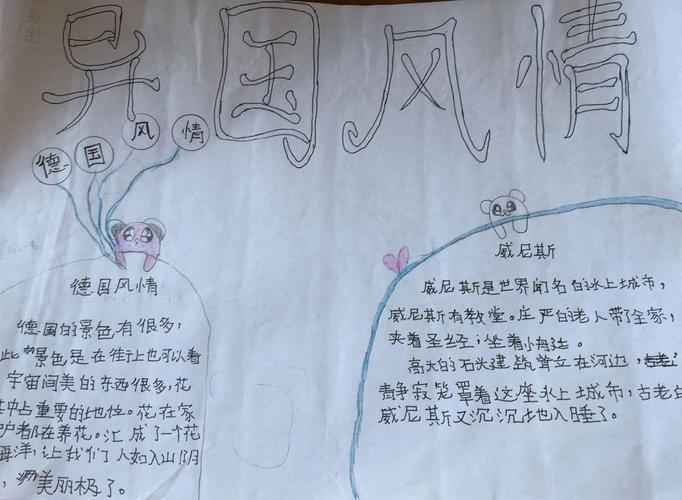 异国风情
德国风情
德国风情
德国的景色有很多，
此景色是在街上也可以看
宇宙间美的东西很多，花
其中占重要的地位。花在家
户都在养花。汇成了一个花
海洋，让我们人如入山阴
，美丽极了。
威尼斯
威尼斯是世界闻名的水上城市，
威尼斯有教堂。庄严的老人带了全家，
夹着圣经坐着小舟边。
高大的石头建筑耸立在河边，
静寂笼罩着这座水上城市，古老白
威尼斯又沉沉地入睡了。